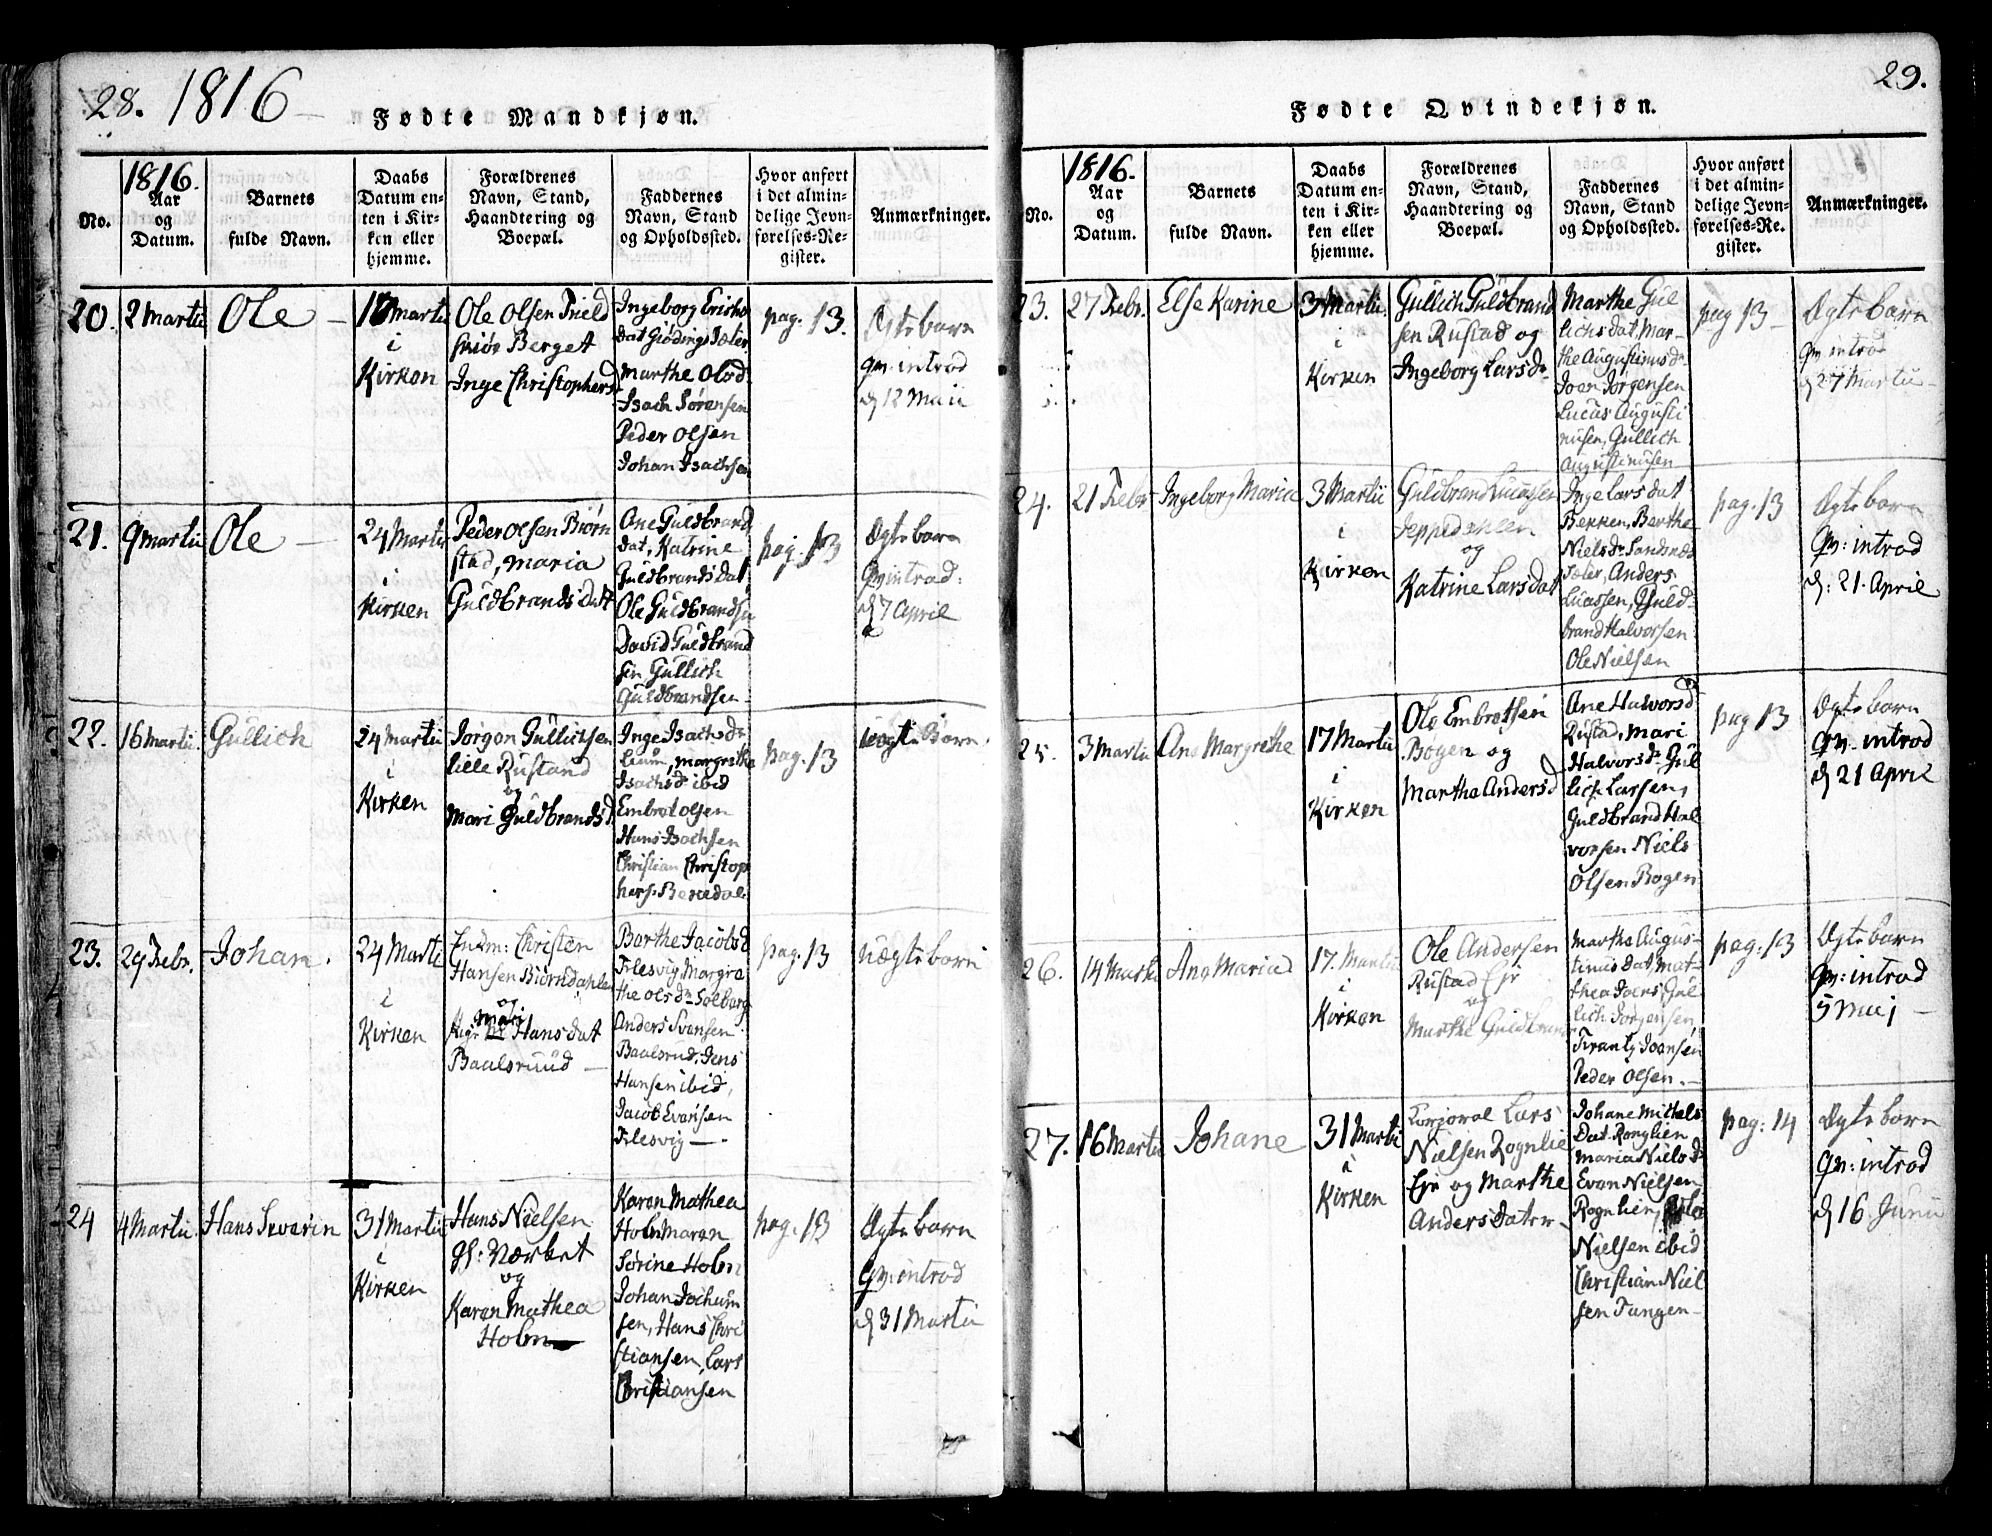 28. 1816
Fødte Mandkjøn.
1816.
No.
Aar
og
Datum.
Barnets
fulde Navn.
Daabs
Datum en-
ten i Kir-
ken eller
hjemme.
Forældrenes
Navn, Stand,
Haandtering og
Boepæl.
Faddernes
Navn, Stand
og Opholdssted.
Hvor anført
i det almin-
delige Jevn-
førelses-Re-
gister.
Anmærkninger.
20.
2 Martii
Ole
Martii
i
Kirken
Ole Olsen
Berget
Inge Christophersd
Ingeborg Erichs
dat
Marthe Olsd.
Isach Sørensen
Peder Olsen
Johan Isachsen
pag. 13.
Ægte barn
Qv: introd
d 12 Maii
21.
9 Martii
Ole
24 Martii
i
Kirken
Peder Olsen Biørn
stad, Maria
Guldbrandsdatt
Ane Guldbrand
dat, Katrine
Guldbrandsdat
Ole Guldbrandsen
David Guldbrand
sen Gullich
Guldbrandsen
pag. 13
Ægte barn
Qv introd:
d 7 April
22.
16 Martii
Gullich
24 Martii
i
Kirken
Jørgen Gullichsen
lille Rustand
og
Mari Guldbrandsd
Inge Isachsd
Margrethe
Isachsd ibid
Embret Olsen
Hans Isachsen
Christian Christop
hers.
pag. 13
uægte Barn
23.
29 Febr.
Johan
24 Martii
i
Kirken
Christen
Hansen Biørndahlen
og
Mari
Hansdat
Baalsruud
Barthe Jacobsd
Flesvig Margre
the Olsd Solberg
Anders Svensen
Baalsrud, Jens
Hansen ibid,
Jacob Evensen
Flesvig
pag. 13
uægte barn
24
4 Martii
Hans Severin
31 Martii
i
Kirken
Hans Nielsen
Gl: Værket
og
Karen Mathea
Holm
Karen Mathea
Holm Maren
Sørine Holm
Johan Jochum
sen, Hans Chri
stiansen, Lars
Christiansen
pag. 13
Ægte barn
Qv: introd
d 31 Martii
29.
Fødte Qvindekjøn.
1816.
No.
Aar
og
Datum.
Barnets
fulde Navn.
Daabs
Datum en-
ten i Kir-
ken eller
hjemme.
Forældrenes
Navn, Stand,
Haandtering og
Boepæl.
Faddernes
Navn, Stand
og Opholdssted.
Hvor anført
i det almin-
delige Jevn-
førelses-Re-
gister.
Anmærkninger.
23.
27 Febr.
Else Karine
3 Martii
i
Kirken
Gullich Guldbrand
sen Rustad og
Ingeborg Larsd
Marthe Gul
lichsdat, Mar-
the Augustinusd
Joen Jørgensen
Lucas Augusti
nusen, Gullich
Augustinusen
pag 13
Ægte barn
Qv introd
d 27 Martii
24.
21 Febr
Ingeborg Maria
3 Martii
i
Kirken
Guldbrand Lucassen
Seppedahlen
og
Katrine Larsdat
Inge Larsdat
Bekken, Berthe
Nielsd
Anders
Lucassen, Guld-
brand Halvorsen
Ole Nielsen
pag. 13
Ægte barn
Qv: introd
d: 21 April
25.
3 Martii
Ane Margrethe
17 Martii
i
Kirken
Ole Embretsen
Bogen og
Marthe Andersd
Ane Halvorsd
Rustad, Mari
Halvorsd Gul
lich Larsen,
Guldbrand Hal
vorsen Niels
Olsen Bogen
pag 13
Ægte barn
Qv: introd
d 21 April
26.
14 Martii
Ane Maria
17 Martii
i
Kirken
Ole Andersen
Rustad Eje
og
Marthe Guldbrand
Marthe Augus-
tinusdat, Mat-
thea Joens, Gul
lich Jørgensen,
Frantz Joensen
Peder Olsen.
pag. 13
Ægte barn
Qv: introd
5 Maij
27.
16 Martii
Johane
31 Martii
i
Kirken
Corporal Lars
Nielsen Rognlie
Eje og Marthe
Andersdatter
Johane Mickels
dat Rognlien
Maria Nielsd
Even Nielsen
Rognlien,
Nielsen ibid
Christian Niel
sen Tangen
pag: 14
Ægte barn
Qv: introd
d 16 Junii